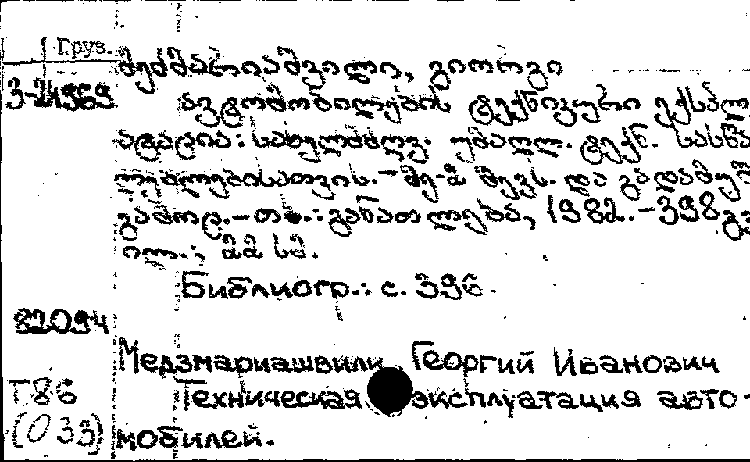 Груз.
მეძმარიაშვილი, გიორგი
3-24969
ავტომობილების ტექნიკური ექსპლ
ატაცია: სახელმძღვ. უმაღლ. ტექნ. სასწა
ვლებლებისათვის. - მე-2 შევს. და გადამუშ
გამოც. - თბ.: განათლება, 1982. - 398გვ
ილ.; 22 სმ.
Библиогр.: с. 396.
82094
Медзмариашвили Георгий Иванович
T86 Техническая эксплуатация авто-
(033) мобилей.